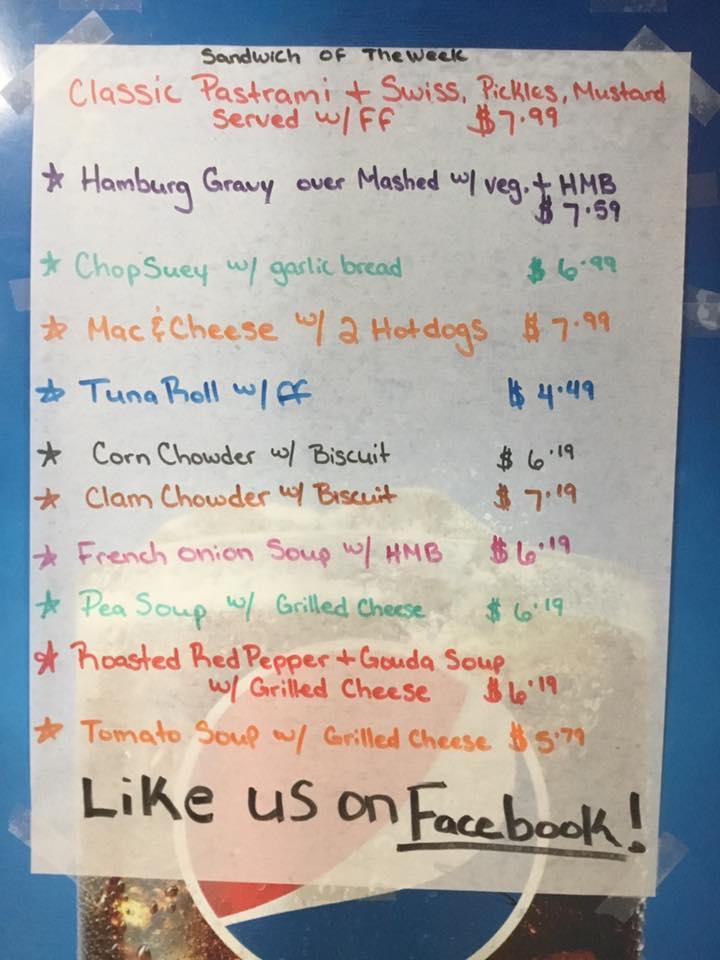 Sandwich of The Week
Classic Pastrami + Swiss, Pickles, Mustard
Served w/ FF $7.99
Hamburg Gravy over Mashed w/ veg. + HMB
$7.59
Chop Suey w/ garlic bread $6.99
Mac & Cheese w/ 2 Hotdogs $7.99
Tuna Roll w/ FF $4.49
Corn Chowder w/ Biscuit $6.19
Clam Chowder w/ Biscuit $7.19
French onion Soup w/ HMB $6.19
Pea Soup w/ Grilled Cheese $6.19
Roasted Red Pepper + Gouda Soup
w/ Grilled Cheese $6.19
Tomato Soup w/ Grilled Cheese $5.79
Like us on Facebook!